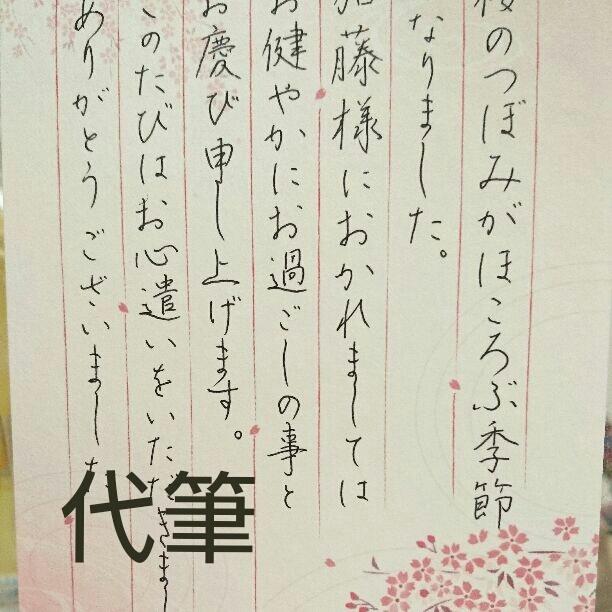 桜のつぼみがほころぶ季節
なりました。
加藤様におかれましては
お健やかにお過ごしの事と
お慶び申し上げます。
このたびはお心遣いをいただきまし
ありがとうございました
代筆